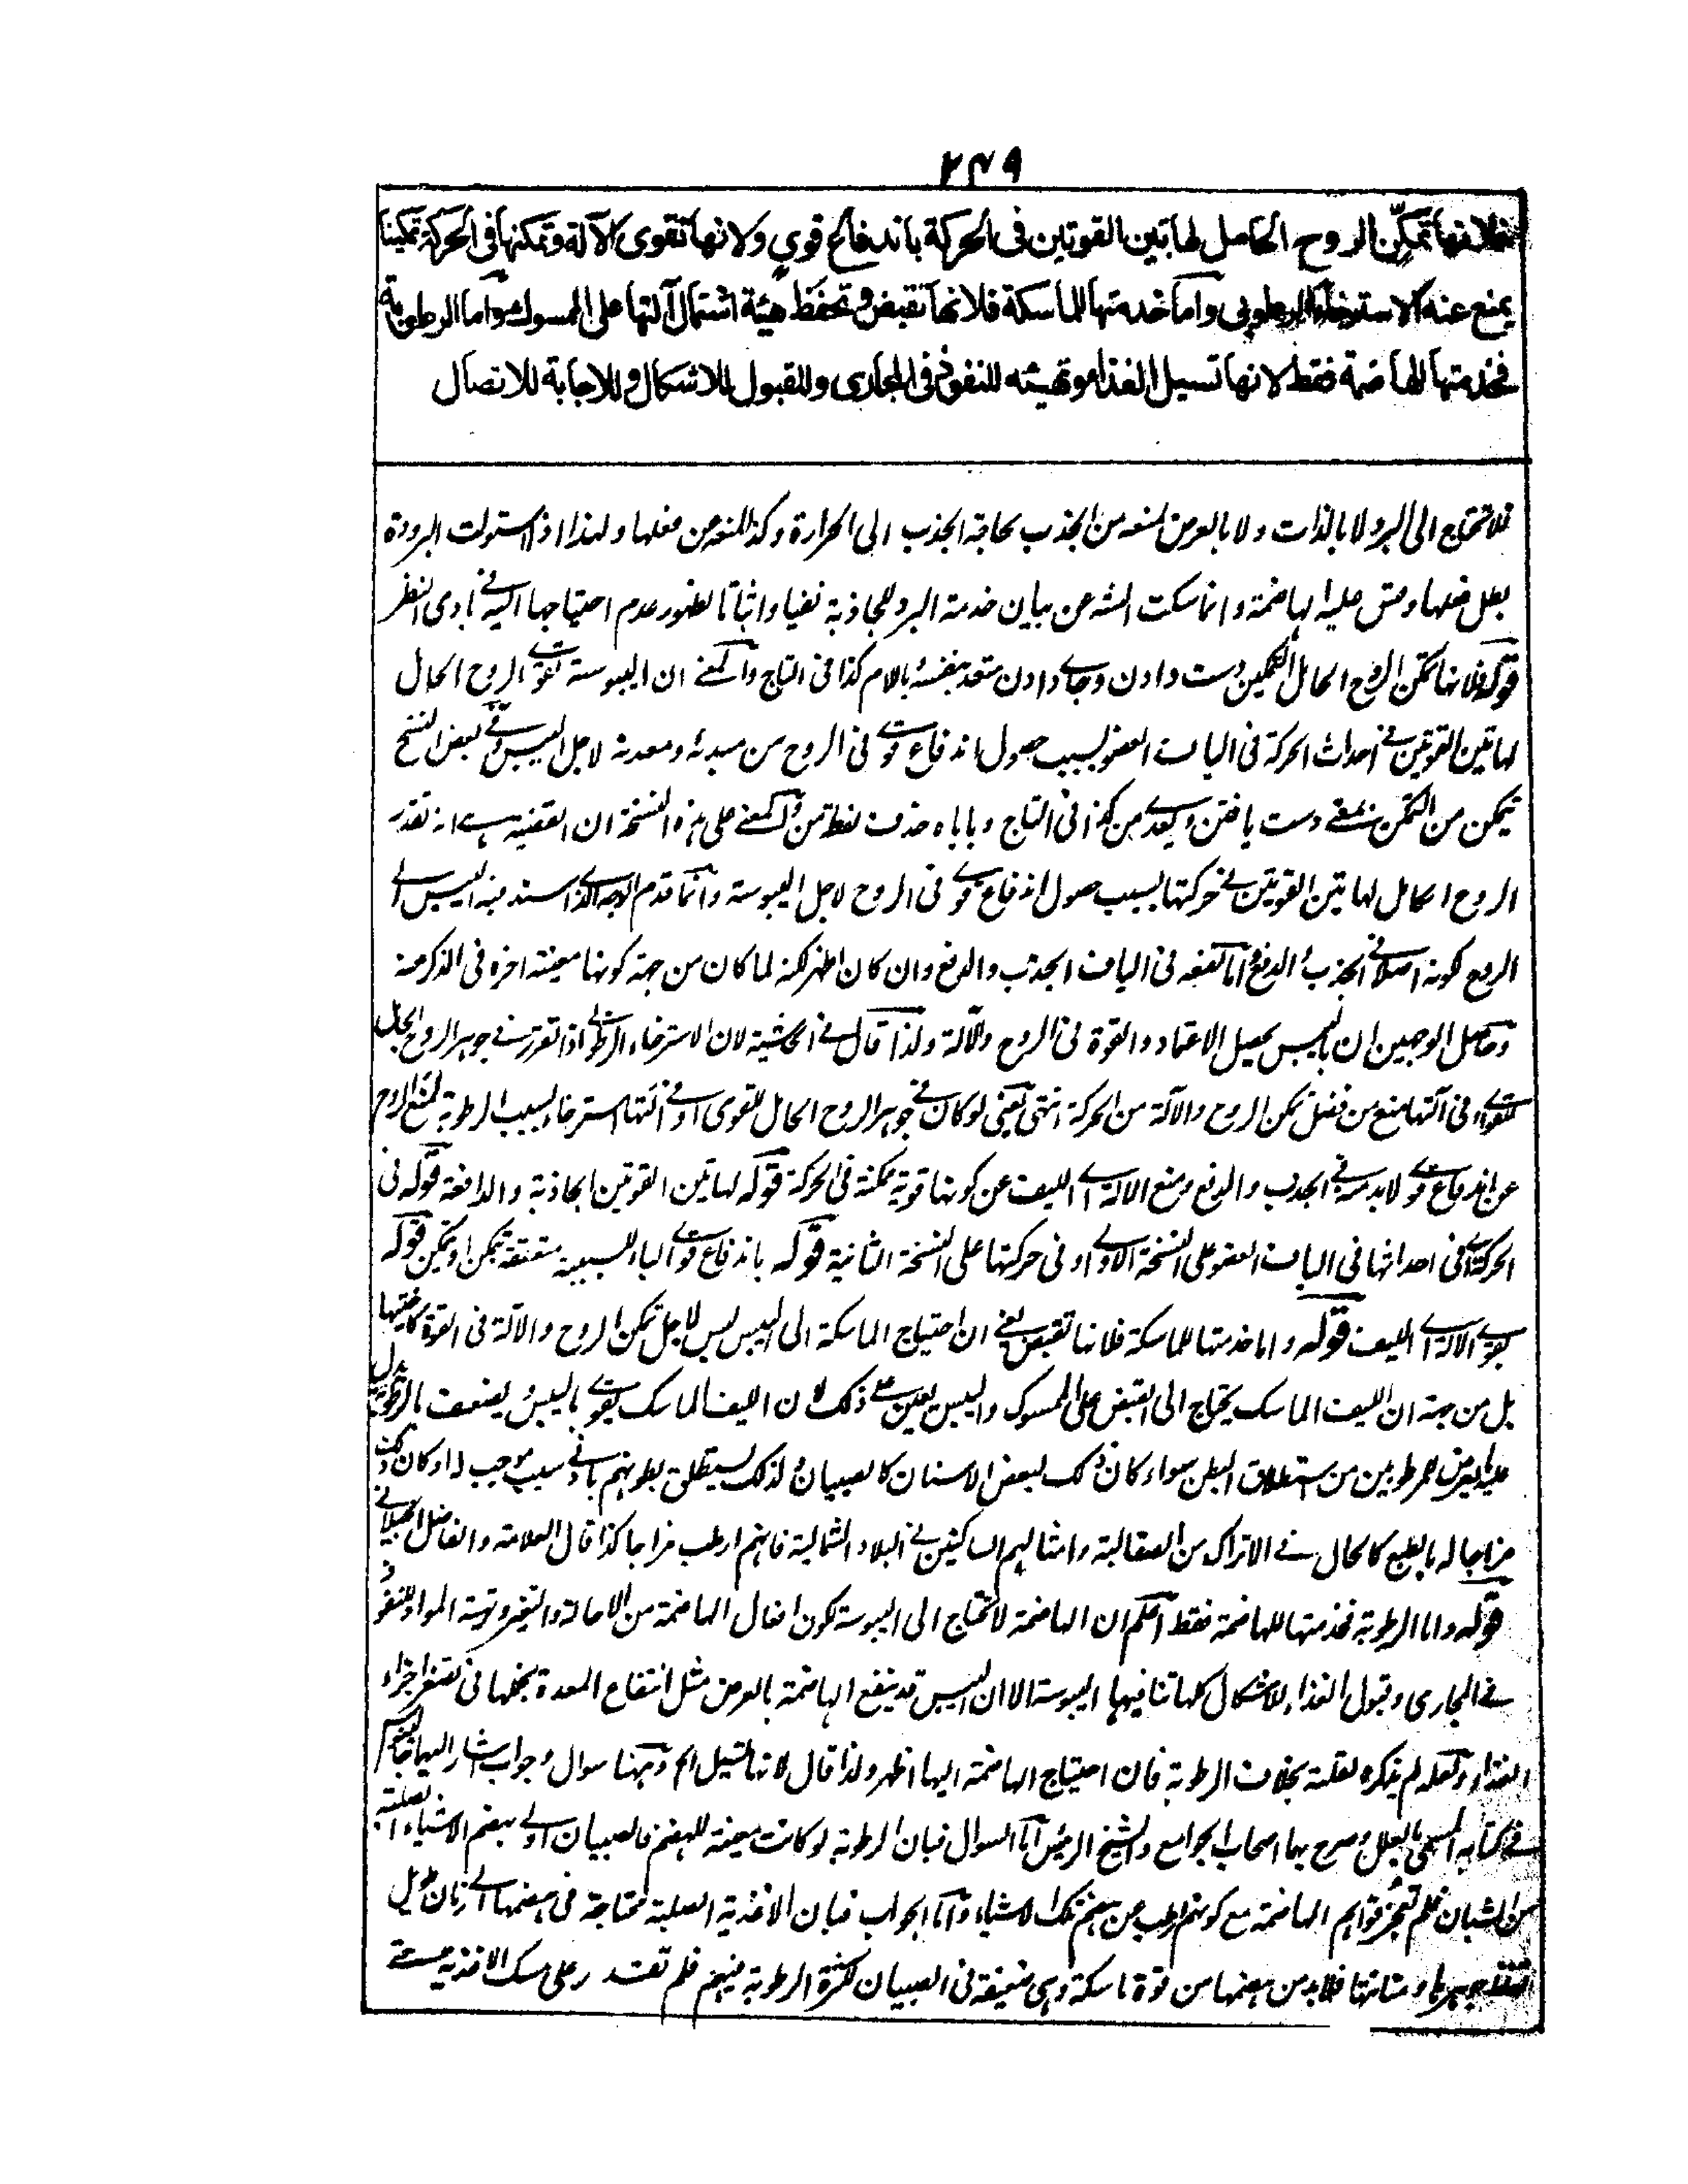 ٢٤٩
فلانها تمكّن الروح الحامل لهاتين القوتين فى الحركة باندفاع قوى ولانها تقوى الآلة وتمكنها فى الحركة تمكينا
يمنع عنه الاسترخاء الرطوبى واما خدمتها للماسكة فلانها تقبض وتحفظ هيئة اشتمال آلتها على الممسوك واما الرطوبة
فخدمتها للهاضمة فقط لانها تسيل الغذاء وتهيئه للنفوذ فى المجارى وللقبول للاشكال وللاجابة للاتصال
فلا تحتاج الى البرد لا بالذات ولا بالعرض لمنعه من الجذب لحاجة الجذب الى الحرارة وكذا لمنعه من فعلها ولهذا اذا استولت البرودة
بطل فعلها وقس عليه الهاضمة وانما سكت الشه عن بيان خدمة البرد للجاذبة نفيا واثباتا لظهور عدم احتياجها اليه فى بادى النظر
قوله فلانها تمكن الروح الحامل التمكين دست دادن وجاے دادن متعد بنفسه وباللام كذا فى التاج والمعنے ان اليبوسة تقوى الروح الحامل
لهاتين القوتين فى احداث الحركة فى الياف العضو بسبب حصول اندفاع قوى فى الروح من مبدئه ومعدنه لاجل اليبس وفى بعض النسخ
تمكن من التمكن بمعنے دست يافتن ويعدى بمن كذا فى التاج وياباه حذف لفظ من والمعنے على هذه النسخة ان القضية انه تقدر
الروح الحامل لهاتين القوتين فى حركتها بسبب حصول اندفاع قوى فى الروح لاجل اليبوسة وانما قدم الوجه الذى اسند فيه اليبس الى
الروح كونه اصلا فى الجذب والدفع واما نفعه فى الياف الجذب والدفع وان كان اظهر لكنه لما كان من جهة كونها معينة اخره فى الذكر منه
وحاصل الوجهين ان باليبس يحصل الاعتماد والقوة فى الروح والآلة ولذا قال فى الحاشية لان الاسترخاء الرطوبى اذا تقرر فى جوهر الروح الحامل
للقوى او فى آلتها منع من فضل تمكن الروح والآلة من الحركة انتهى يعنى لو كان فى جوهر الروح الحامل للقوى او فى آلتها استرخاء بسبب الرطوبة لمنع الروح
عن اندفاع قوى لا بد منه فى الجذب والدفع ومنع الآلة اى الليف عن كونها قوية ممكنة فى الحركة قوله لهاتين القوتين الجاذبة والدافعة قوله فى
الحركة اى فى احداثها فى الياف العضو على النسخة الاولى او فى حركتها على النسخة الثانية قوله باندفاع قوى الباء للسببية متعلقة بتمكن او تمكن قوله
يقوى الآلة اى الليف قوله واما خدمتها للماسكة فلانها تقبض يعنے ان احتياج الماسكة الى اليبس ليس لاجل تمكن الروح والآلة فى القوة كاختيها
بل من جهة ان الليف الماسك يحتاج الى القبض على الممسوك واليبس يعين على ذلك لان الليف الماسك يقوى باليبس ويضعف بالرطوبة يدل
عليه ما يعرض للمرطوبين من استطلاق البطن سواء كان ذلك لبعض الاسنان كالصبيان ولذلك يستطلق بطونهم بادنى سبب موجب له او كان ذلك
مزاجا له بالطبع كالحال فى الاتراك من الصقالبة وامثالهم الساكنين فى البلاد الشمالية فانهم ارطب مزاجا كذا قال العلامة والفاضل الجيلانى
قوله واما الرطوبة فخدمتها للهاضمة فقط اعلم ان الهاضمة لا تحتاج الى اليبوسة لكون افعال الهاضمة من الاحالة والتغير وتهيئة المواد للنفوذ
فى المجارى وقبول الغذاء للاشكال كلها تنافيها اليبوسة الا ان اليبس قد ينفع الهاضمة بالعرض مثل انتفاع المعدة بخملها فى تصغير اجزاء
الغذاء ولعله لم يذكره لقلته بخلاف الرطوبة فان احتياج الهاضمة اليها اظهر ولذا قال لانها تسيل الخ وههنا سوال وجواب اشار اليهما
فى كتابه المسمى بالعلل وصرح بهما اصحاب الجوامع والشيخ الرئيس اما السوال فبان الرطوبة لو كانت معينة للهضم فالصبيان اولى بهضم الاشياء الصلبة
من الشبان فلم تعجز قواهم الهاضمة مع كونهم ارطب عن هضم تلك الاشياء واما الجواب فبان الاغذية الصلبة محتاجة فى هضمها الى زمان طويل
جوهرها ومتانتها فلا بد من هضمها من قوة ماسكة وهى ضعيفة فى الصبيان لكثرة الرطوبة فيهم فلم تقتدر على مسك الاغذية حتى